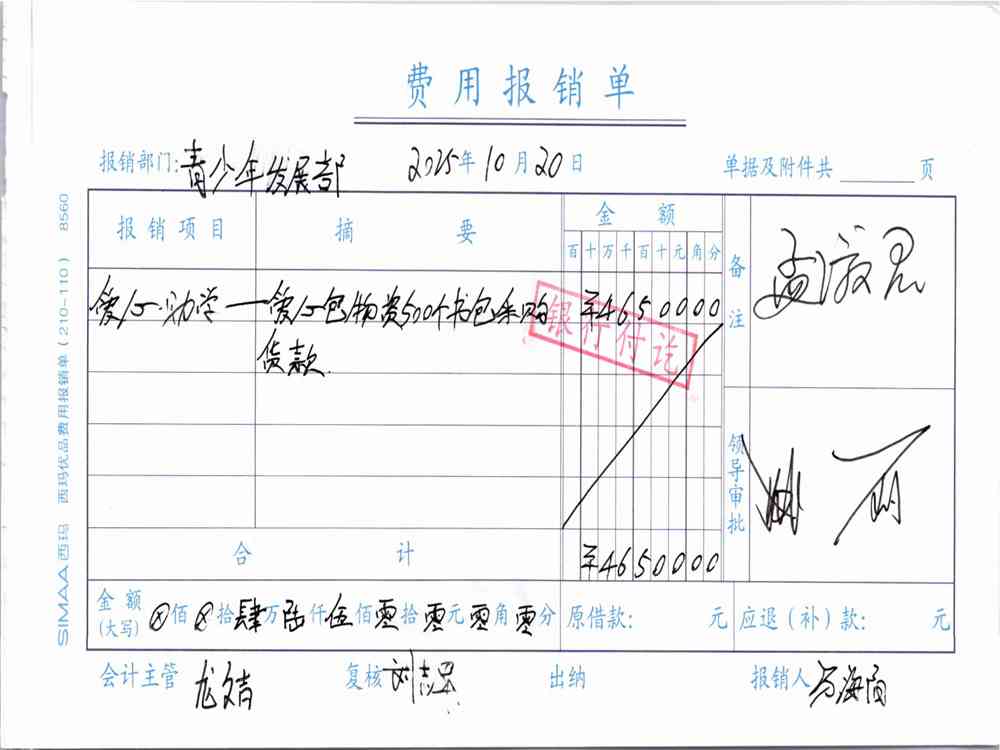 费用报销单
报销部门:青少年发展部 2025年10月20日 单据及附件共 页
报销项目 摘要 金额 备注
百十万千百十元角分
爱心助学—爱心包物资500个书包采购 ¥4650000
货款.
银行付讫
领导审批
合计 ¥4650000
金额(大写) ⊗佰⊗拾肆万陆仟伍佰零拾零元零角零分 原借款: 元 应退(补)款: 元
会计主管 龙文青 复核 出纳 报销人
SIMAA西玛 西玛优品费用报销单(210-110) 8560